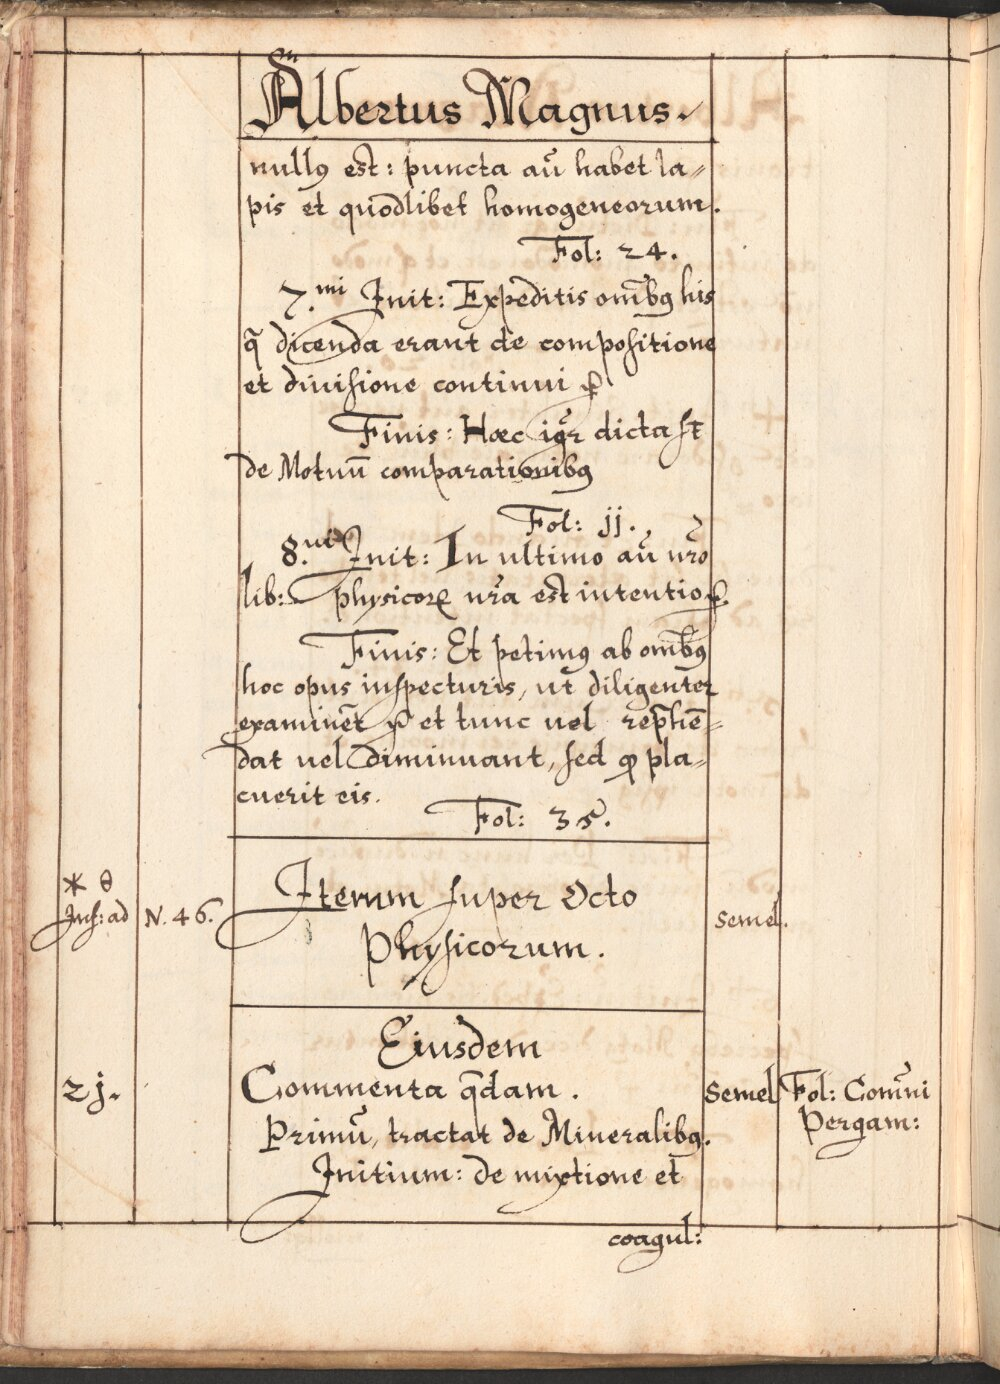 Albertus Magnus.
nullꝰ est: puncta aū habet la=
pis et quodlibet homogeneorum.
Fol: 24.
7.mi Init: Expeditis om̄bꝰ his
q̄ dicenda erant de compositione
et diuisione continui ꝛc
Finis: Hæc igr̄ dicta st̄
de Motuū comparationibꝰ
Fol: jj.
8.ui Init: In ultimo aū nr̄o
lib: physicoꝝ nr̄a est intentio ꝛc
Finis: Et petimꝰ ab om̄bꝰ
hoc opus inspecturis, ut diligenter
examinēt ꝛc et tunc uel rep̄hē=
dat uel diminuant, sed ꝓ pla=
cuerit eis.
Fol: 35.
* θ
Inf: ad N. 46. Iterum super Octo semel.
Physicorum.
Eiusdem
2j. Commenta q̄dam. Semel Fol: Com̄ni
Pergam:
Primū, tractat de Mineralibꝰ.
Initium: de mixtione et
coagul: